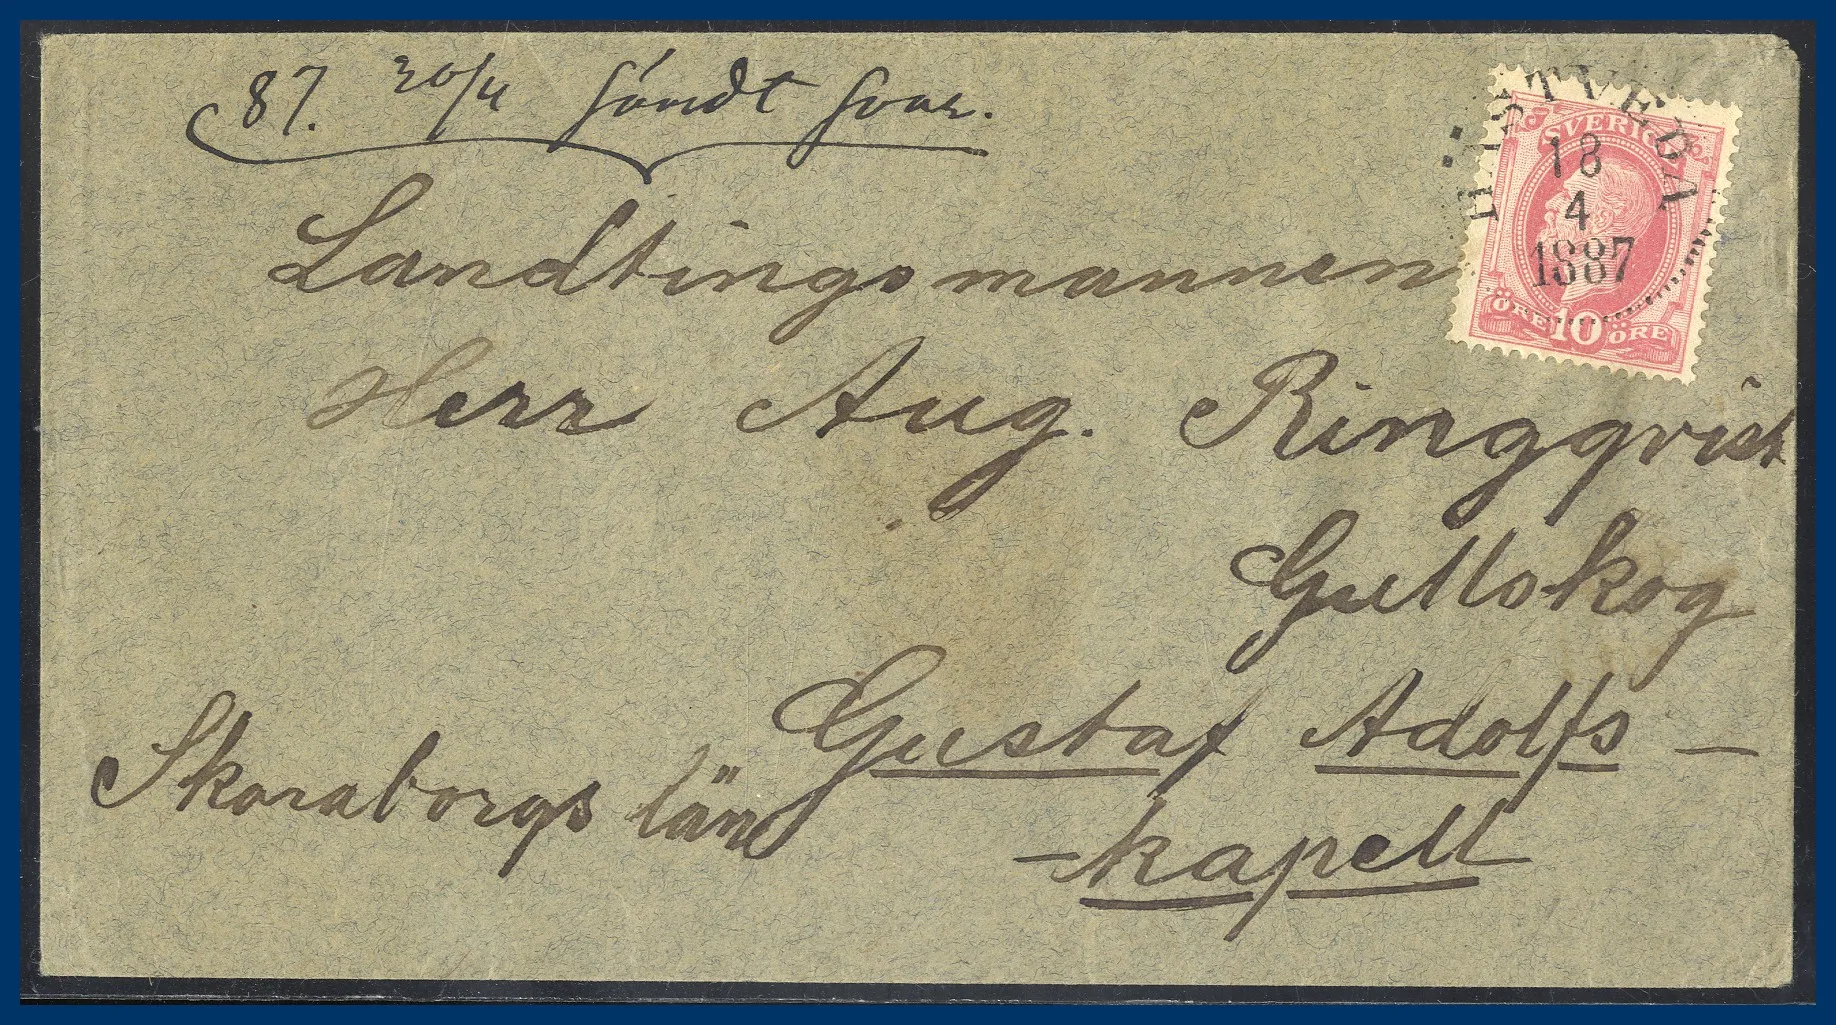 87. 20/4 sändt svar.
HÄSTVEDA
18
4
1887
SVERIGE
ÖRE 10 ÖRE
Landtingsmannen
Herr Aug. Ringqvist
Gullskog
Gustaf Adolfs -
- kapell
Skaraborgs län